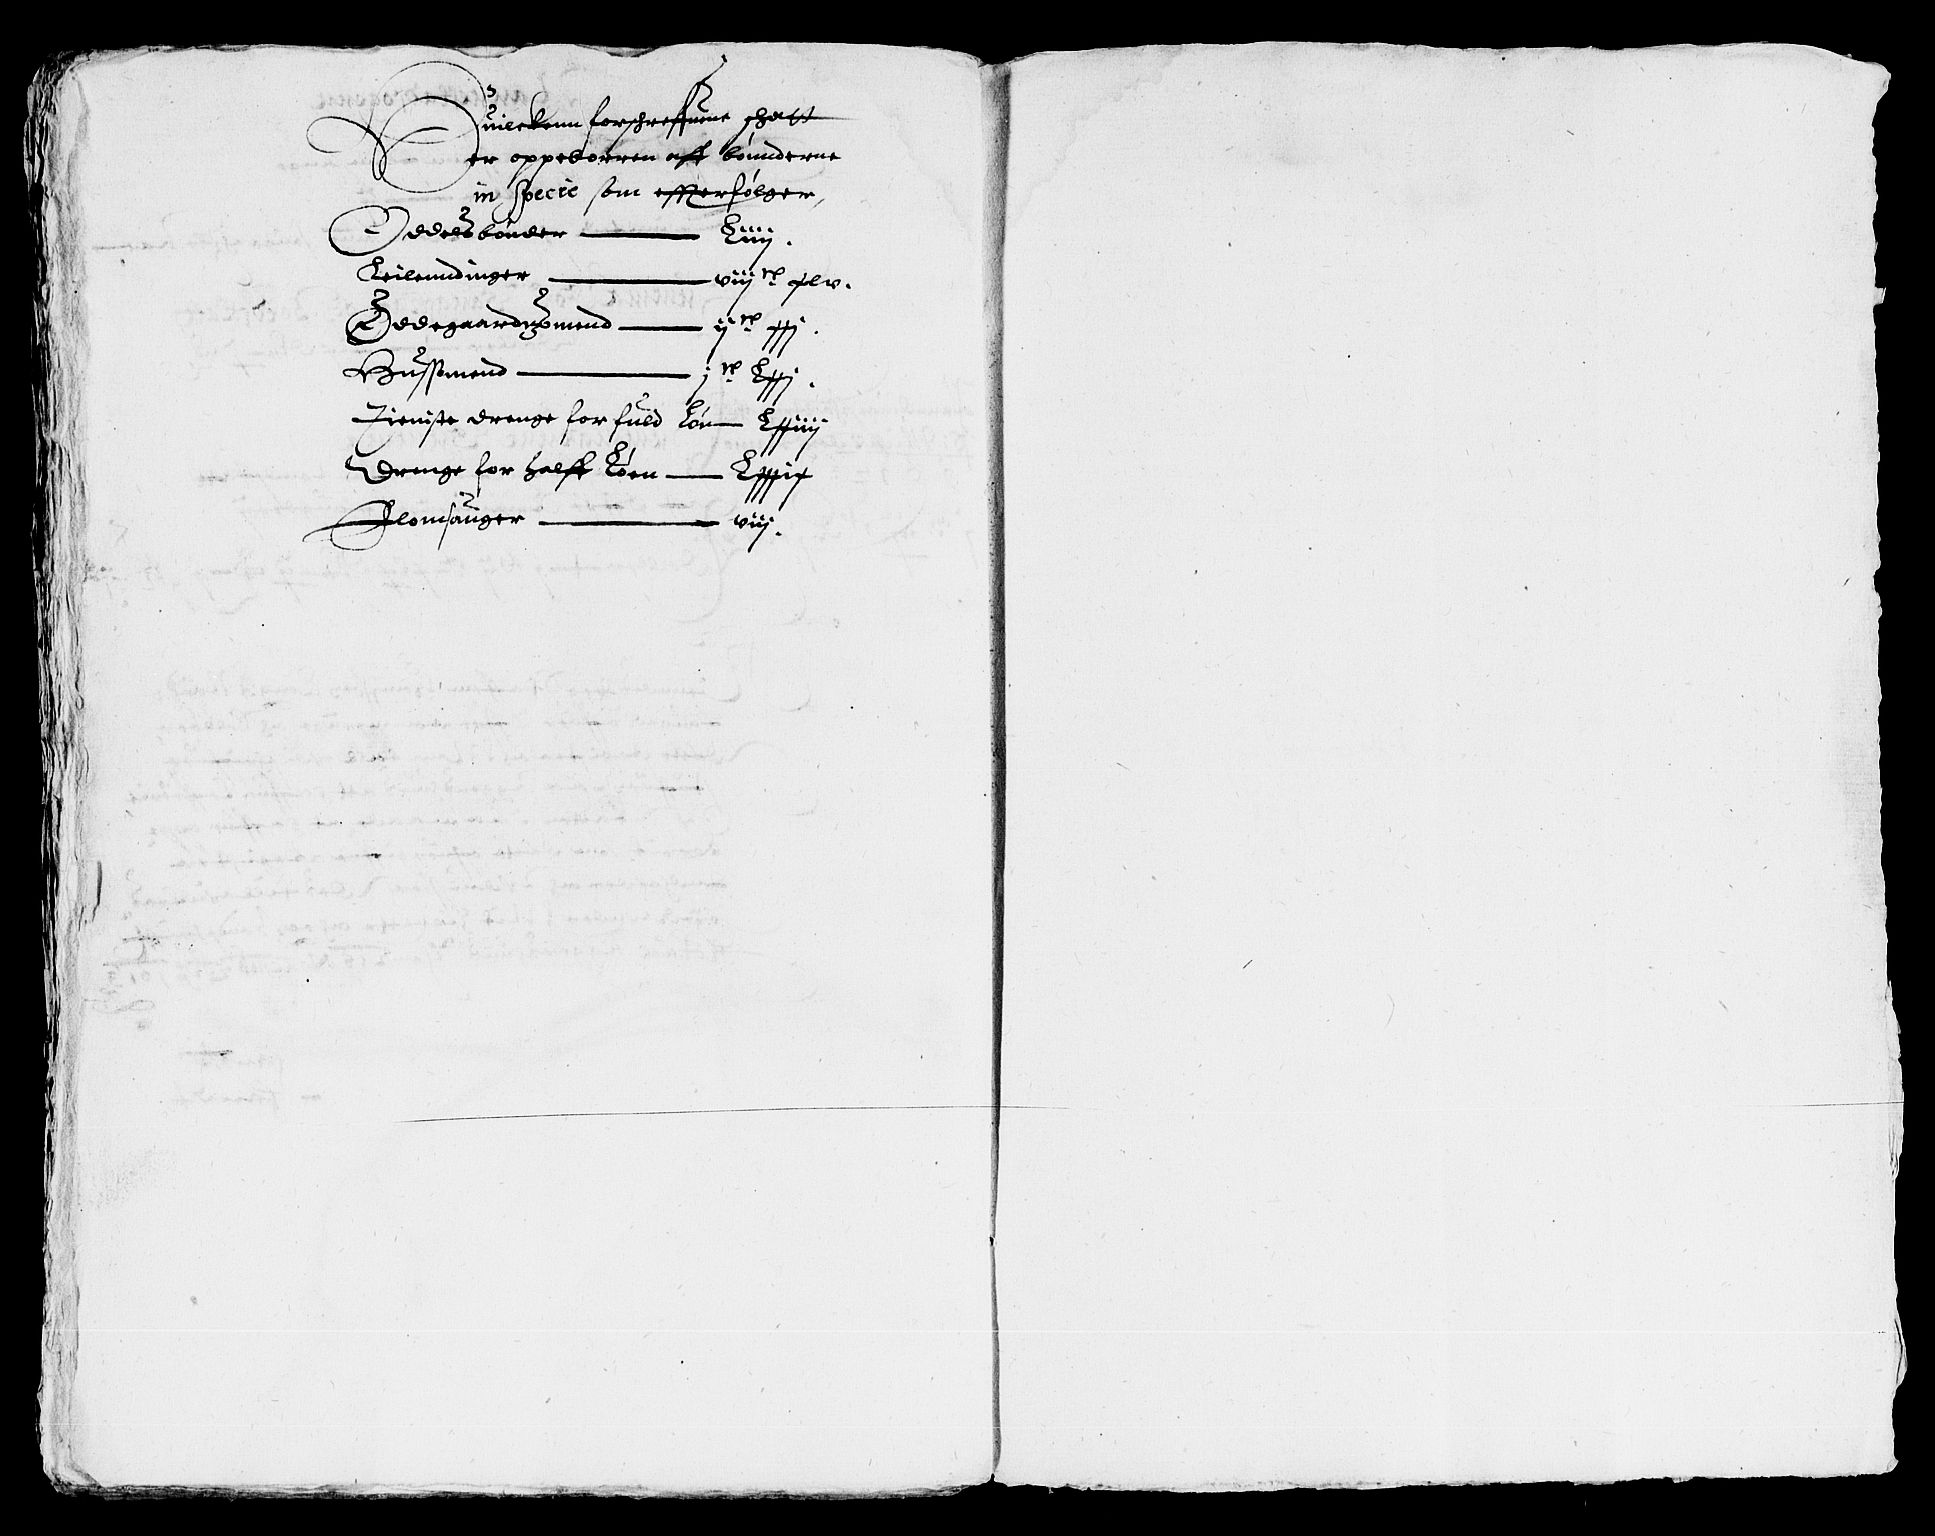 Huilckenn forschreffuene schatt
er oppeborren aff bønnderne
in specie som effterfølger,
Oddelsbønder — Liiij.
Leilenndinger — viij^c xlv.
Øddegaardtzmend — ij^c xxj.
Hussmend — j^c Lxxj.
Tieniste drenge for fuld Løn — Lxxiiij
Drenge for halff Løen — Lxxxix
Flomsauger — viij.